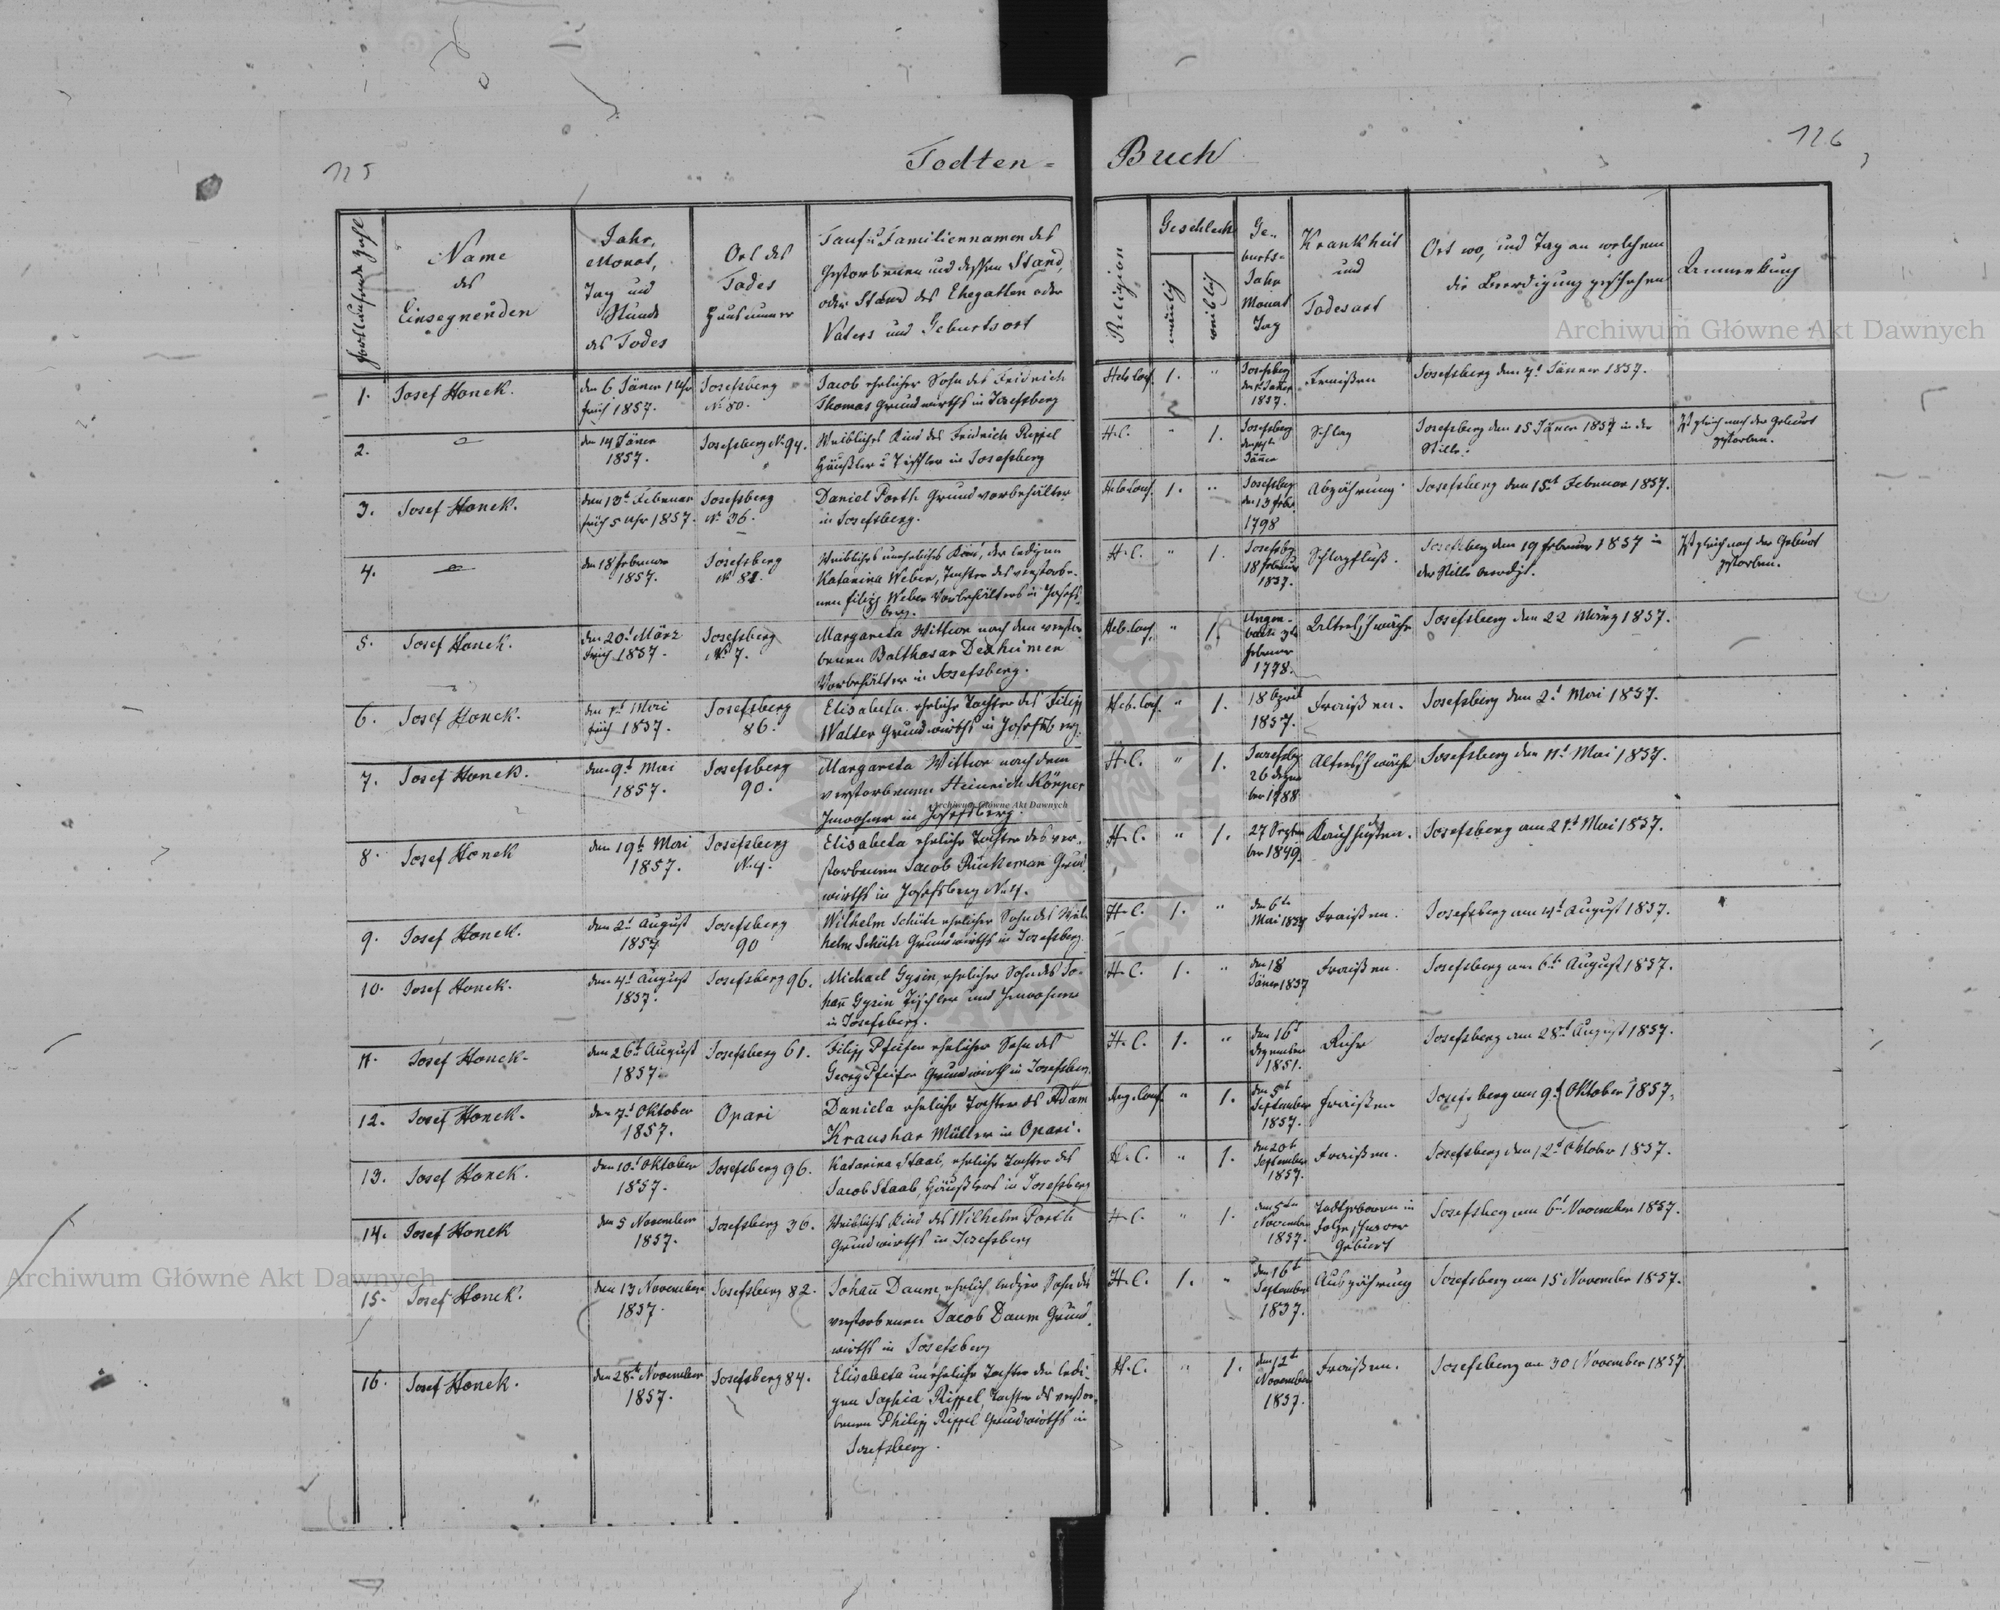 125
126
Todten = Buch
fortlaufende Zahl
Name
des
Einsegnenden
Jahr,
Monat,
Tag und
Stunde
des Todes
Ort des
Todes
Hausnumer
Tauf u Familiennamen des
Gestorbenen und dessen Stand,
oder Stand des Ehegatten oder
Vaters und Geburtsort
Religion
Geschlecht
mänlich
weiblich
Ge-
burts-
Jahr
Monat
Tag
Krankheit
und
Todesart
Ort wo, und Tag an welchem
die Beerdigung geschehen
Anmerkung
1.
Josef Honek.
den 6. Jäner 1 Uhr
früh 1857.
Josefsberg
N. 80.
Jacob ehelicher Sohn des Fridrich
Thomas Grundwirths in Josefsberg
Helv. Conf.
1.
"
Josefsberg
Jäner
1857.
Fraißen
Josefsberg den 7t Jäner 1857.
2.
den 14 Jäner
1857.
Josefsberg N. 94.
Weibliches Kind des Fridrich Rippel
Häußler u Tischler in Josefsberg
H. C.
"
1.
Josefsberg
Jäner
Schlag
Josefsberg den 15 Jäner 1857 in der
Stille.
Ist gleich nach der Geburt
gestorben.
3.
Josef Honek.
den 13t Februar
früh 5 Uhr 1857.
Josefsberg
N. 36.
Daniel Porth Grundvorbehälter
in Josefsberg.
Helv. Conf.
1.
"
Josefsberg
den 13 Febr
1798
Abzährung
Josefsberg den 15t Februar 1857.
4.
den 18 Februar
1857.
Josefsberg
N. 82.
Weibliches uneheliches Kind, der ledigen
Katarina Weber, Tochter des verstorbe-
nen Filipp Weber Vorbehälters in Josefs-
berg.
H. C.
"
1.
Josefsbg
18 Februar
1857.
Schlagfluß.
Josefsberg den 19 Februar 1857 in
der Stille beerdigt.
Ist gleich nach der Geburt
gestorben.
5.
Josef Honek.
den 20t März
früh 1857.
Josefsberg
N. 7.
Margareta Wittwe nach dem verstor-
benen Balthasar Dexheimer
Vorbehälter in Josefsberg.
Helv. Conf.
"
1.
Februar
1778.
Altersschwäche
Josefsberg den 22 März 1857.
6.
Josef Honek.
den 1t Mai
früh 1857.
Josefsberg
86.
Elisabeta eheliche Tochter des Filipp
Walter Grundwirths in Josefsberg.
Helv. Conf.
"
1.
18 April
1857.
Fraißen.
Josefsberg den 2t Mai 1857.
7.
Josef Honek.
den 9t Mai
1857.
Josefsberg
90.
Margareta Wittwe nach dem
verstorbenen Heinrich Körper
Inwohner in Josefsberg.
H. C.
"
1.
Josefsbg
26 Dezem
ber 1788
Altersschwäche
Josefsberg den 11t Mai 1857.
8.
Josef Honek
den 19t Mai
1857.
Josefsberg
N. 4.
Elisabeta eheliche Tochter des ver-
storbenen Jacob Rückeman Grund-
wirths in Josefsberg N. 4.
H. C.
"
1.
27 Septem
ber 1849.
Keuchhusten.
Josefsberg am 21t Mai 1857.
9.
Josef Honek.
den 2t August
1857
Josefsberg
90
Wilhelm Schütz ehelicher Sohn des Wil-
helm Schütz Grundwirths in Josefsberg.
H. C.
1.
"
den 6t
Mai 1857
Fraißen.
Josefsberg am 4t August 1857.
10.
Josef Honek.
den 4t August
1857.
Josefsberg 96.
Michael Gysin, ehelicher Sohn des Jo-
hann Gysin Tischler und Inwohner
in Josefsberg.
H. C.
1.
"
den 18
Jäner 1857
Fraißen.
Josefsberg am 6t August 1857.
11.
Josef Honek.
den 26t August
1857
Josefsberg 61.
Filipp Pfeifer ehelicher Sohn des
Georg Pfeifer Grundwirth in Josefsberg.
H. C.
1.
"
den 16t
Dezember
1851.
Ruhr
Josefsberg am 28t August 1857.
12.
Josef Honek.
den 7t Oktober
1857.
Opari
Daniela eheliche Tochter des Adam
Kraushar Müller in Opari.
Aug. Conf.
"
1.
den 5t
September
1857.
Fraißen
Josefsberg am 9t Oktober 1857.
13.
Josef Honek.
den 10t Oktober
1857.
Josefsberg 96.
Katarina Staab, eheliche Tochter des
Jacob Staab, Häußlers in Josefsberg
H. C.
"
1.
den 20t
September
1857.
Fraißen.
Josefsberg den 12t Oktober 1857.
14.
Josef Honek
den 5 November
1857.
Josefsberg 36.
Weibliches Kind des Wilhelm Porth
Grundwirths in Josefsberg
H. C.
"
1.
den 5ten
November
1857.
Todtgeboren in
Folge schwerer
Geburt
Josefsberg am 6t November 1857.
15.
Josef Honek.
den 13 November
1857.
Josefsberg 82.
Johann Daum, ehelich lediger Sohn des
verstorbenen Jacob Daum Grund-
wirths in Josefsberg
H. C.
1.
"
den 16t
September
1837.
Auszährung
Josefsberg am 15 November 1857.
16.
Josef Honek.
den 28t November
1857.
Josefsberg 84.
Elisabeta uneheliche Tochter der ledi-
gen Sophia Rippel, Tochter des verstor-
benen Philipp Rippel Grundwirths in
Josefsberg.
H. C.
"
1.
den 12t
November
1857.
Fraißen.
Josefsberg am 30 November 1857.
Archiwum Główne Akt Dawnych
Archiwum Główne Akt Dawnych
Archiwum Główne Akt Dawnych